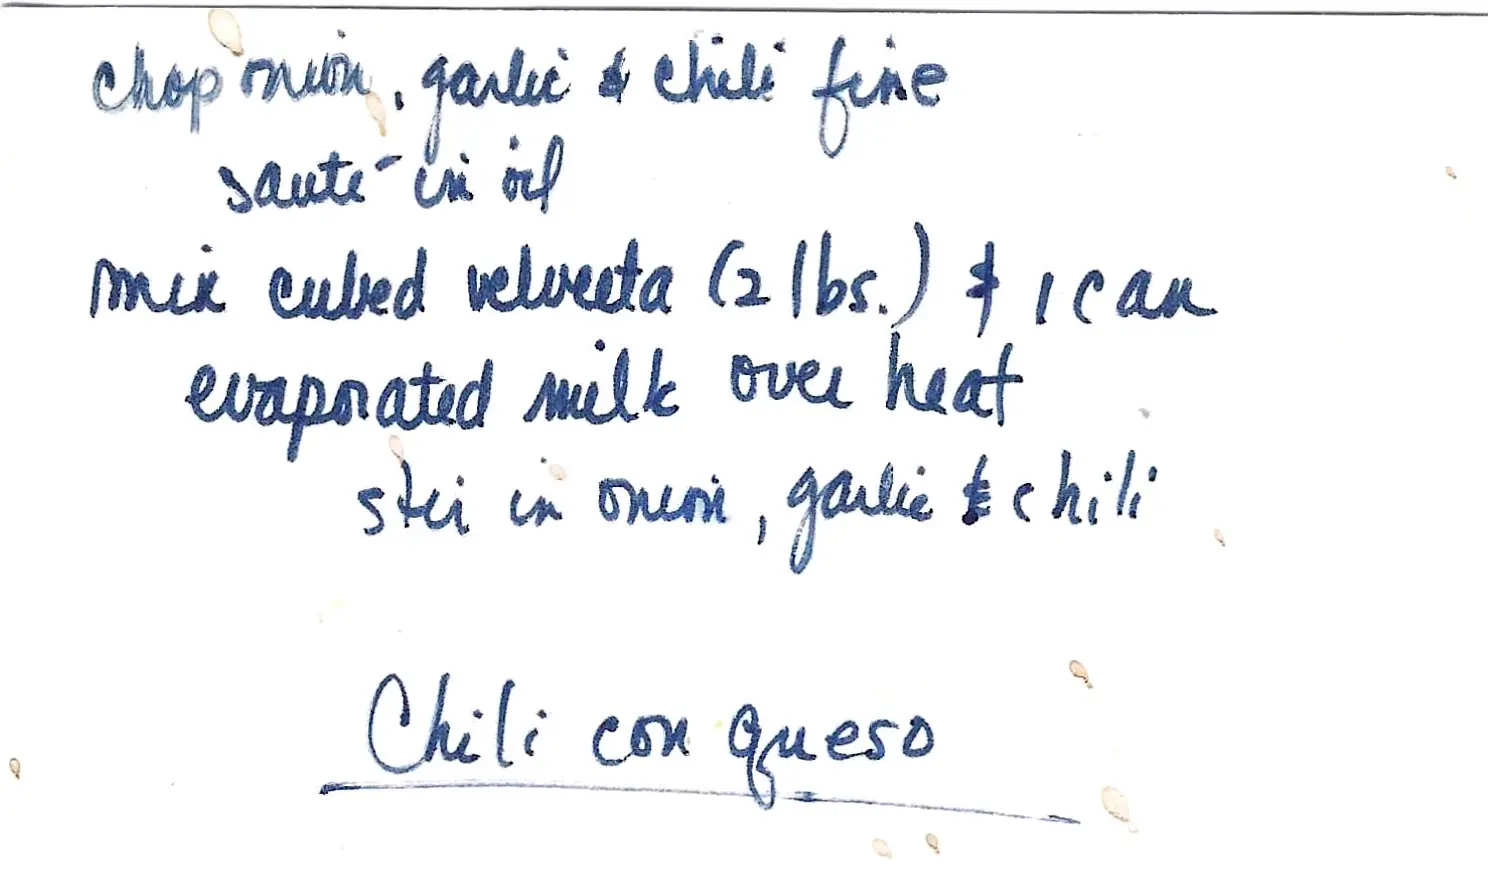 chop onion, garlic & chili fine
sauté in oil
mix cubed velveeta (2 lbs.) & 1 can
evaporated milk over heat
stir in onion, garlic & chili
Chili con queso